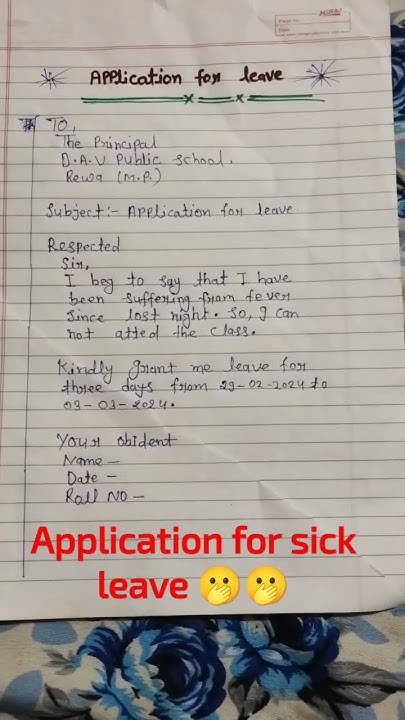 Page No.
Date
Application for leave
To,
The Principal
D.A.V Public School,
Rewa (M.P.)
Subject:- Application for leave
Respected
Sir,
I beg to say that I have
been suffering from fever
since lost night. So, I can
not atted the class.
Kindly grant me leave for
three days from 29-02-2024 to
03-03-2024.
Your obident
Name -
Date -
Roll NO -
Application for sick
leave 🫢🫢